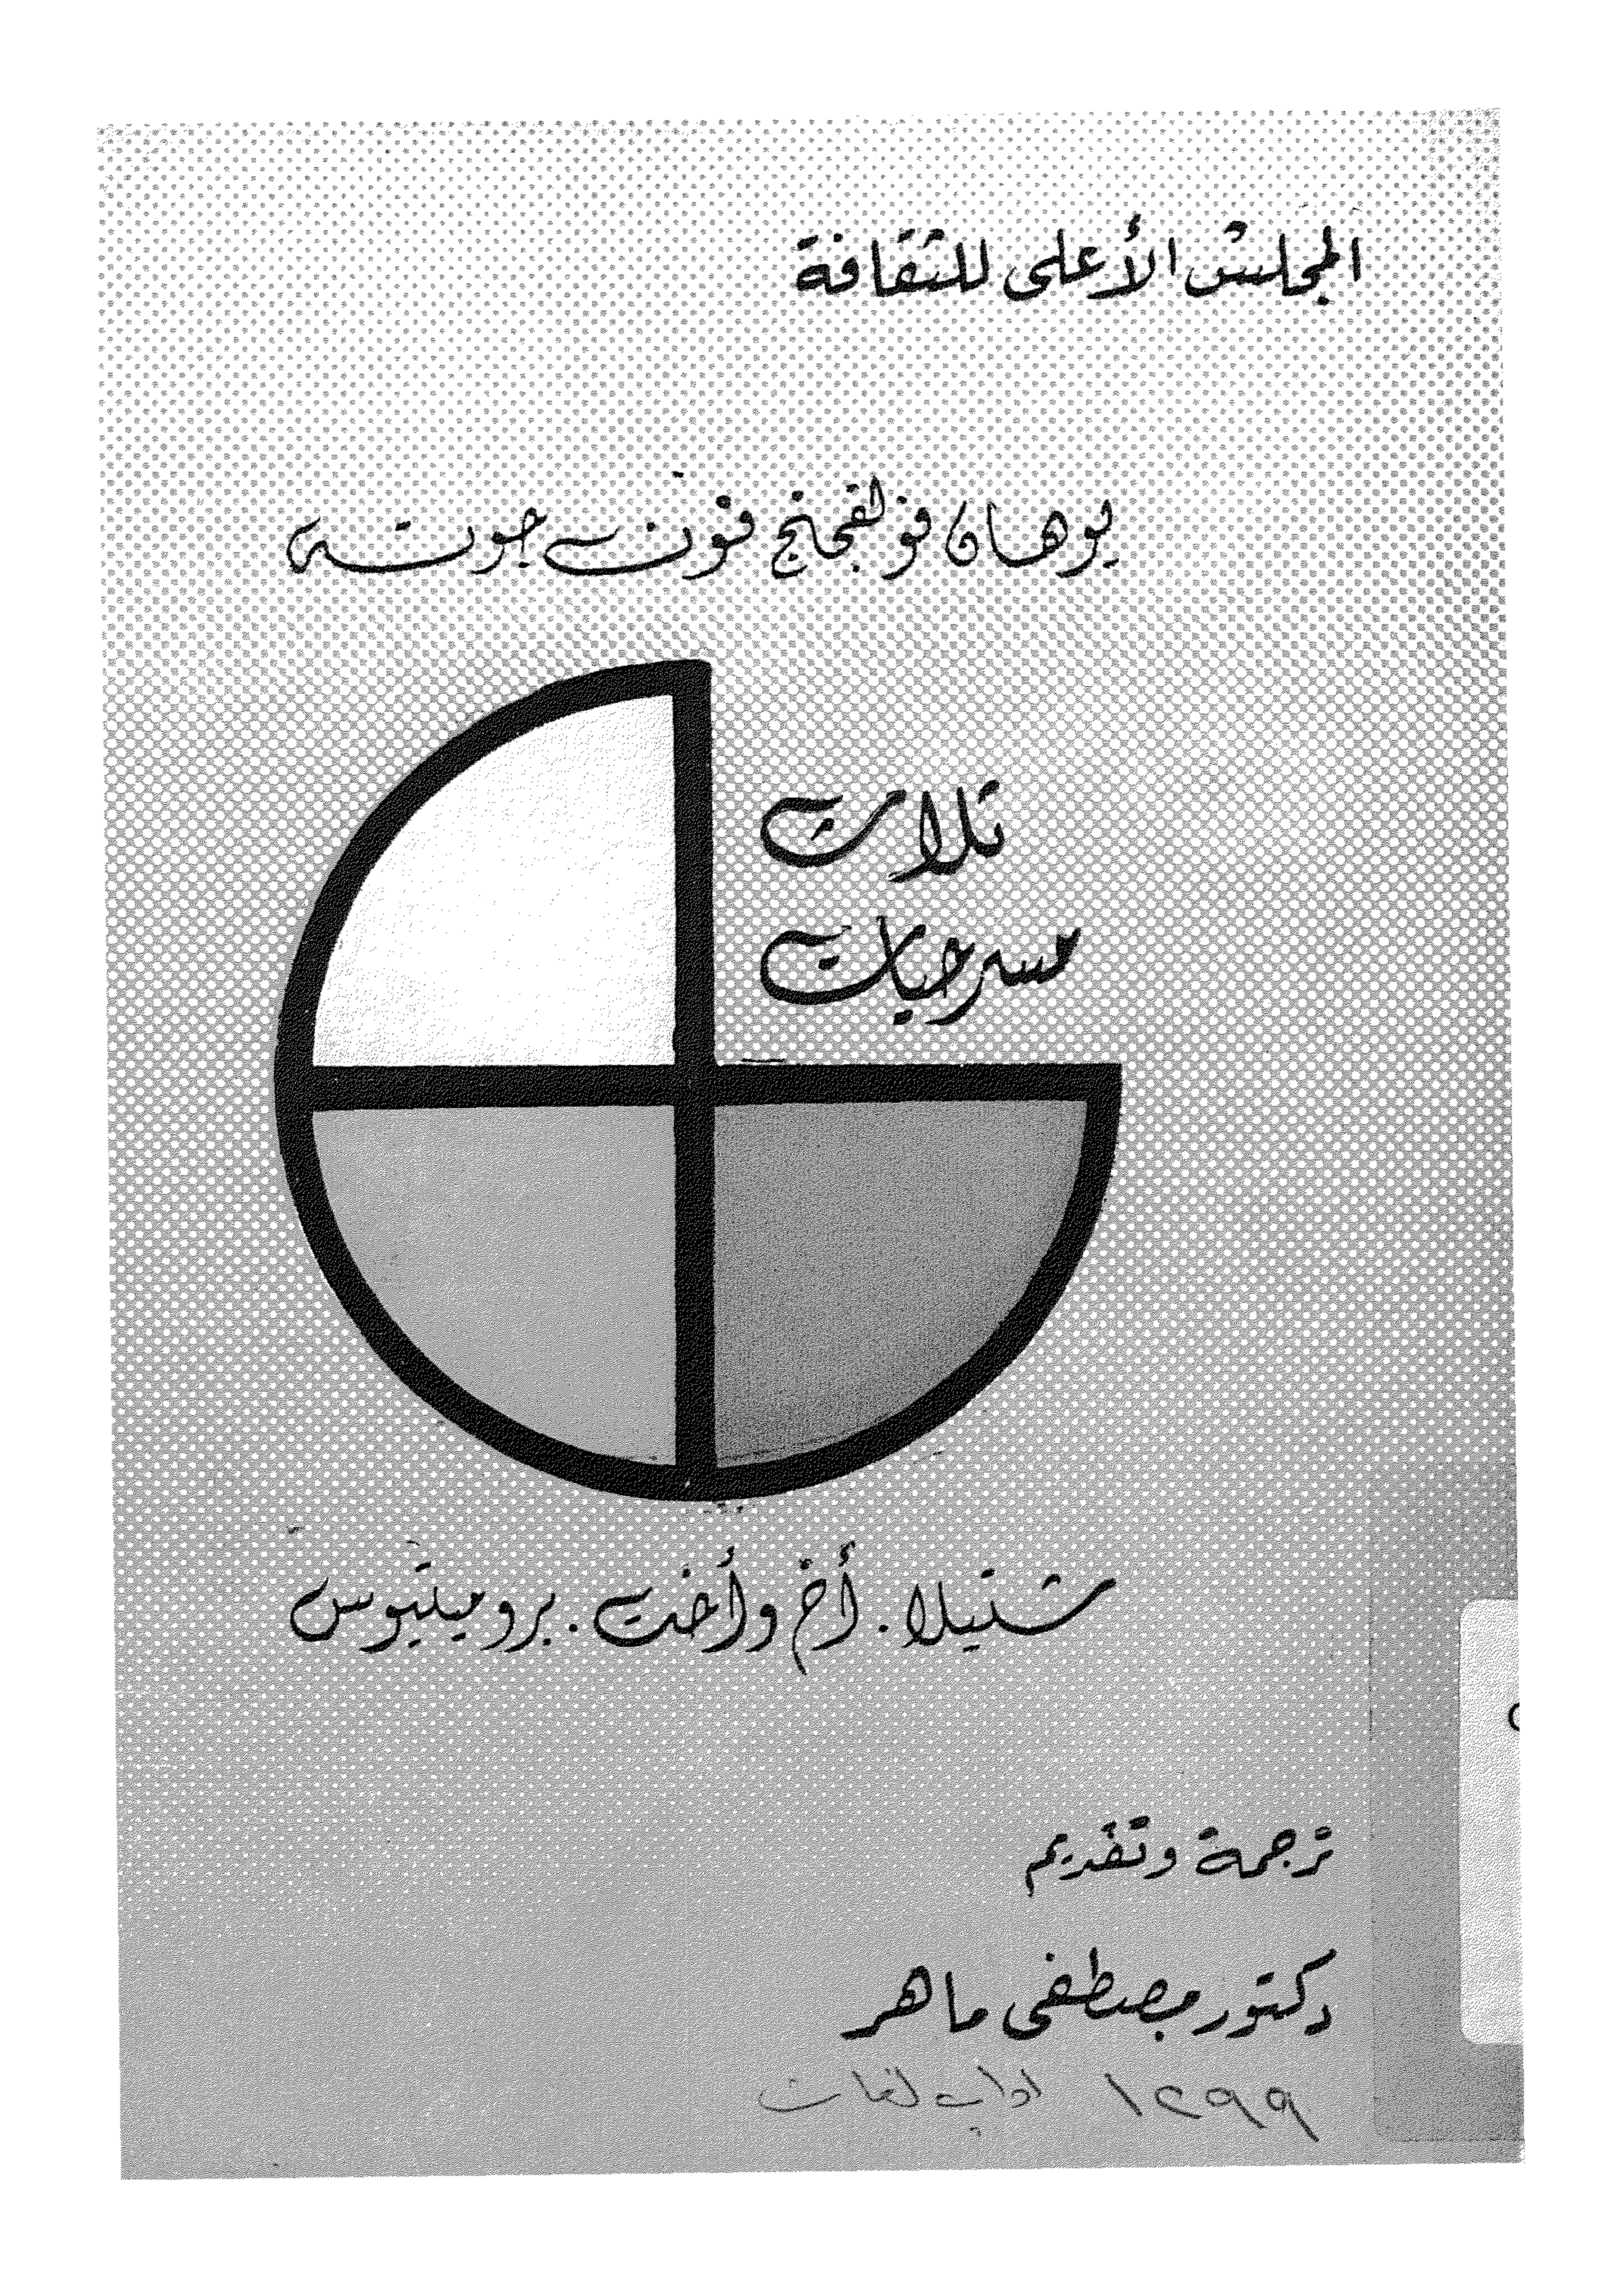 المجلس الأعلى للثقافة
يوهان فولفجنج فون جوته
ثلاث
مسرحيات
شتيلا . أخ وأخت . بروميتيوس
ترجمة وتقديم
دكتور مصطفى ماهر
١٢٩٩ اداب لغات